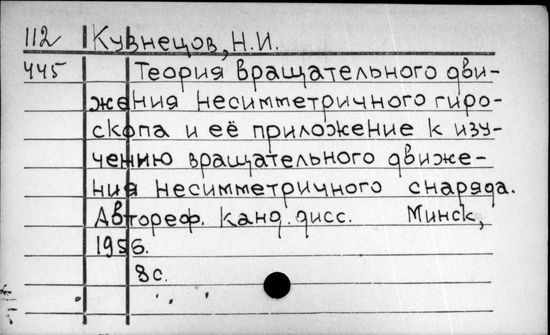 112 Кузнецов, Н.И.
445 Теория вращательного дви-
жения несимметричного гиро-
скопа и её приложение к изу-
чению вращательного движе-
ния несимметричного снаряда.
Автореф. канд. дисс. Минск,
1956.
8 с.